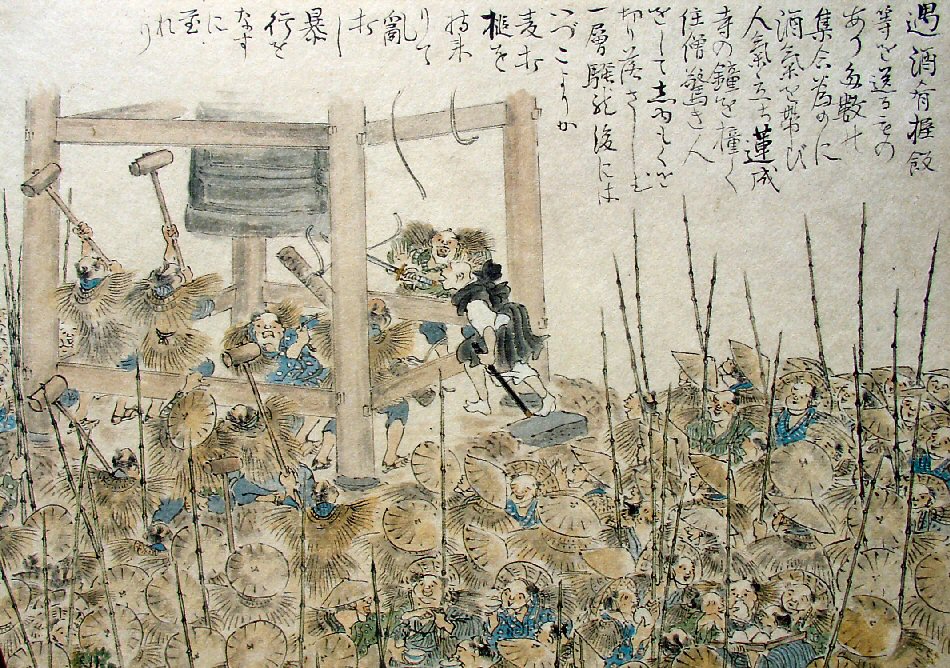 遇酒肴握飯
等を送るもの
あり多数の
集合為めに
酒氣を帯び
人氣立ち蓮成
寺の鐘を撞く
住僧驚き人
をして志もくを
切り落さしむ
一層騒然後には
いづこよりか
麦打
槌を
持来
りて
亂
打し
暴
行を
なす
に
至
れ
り